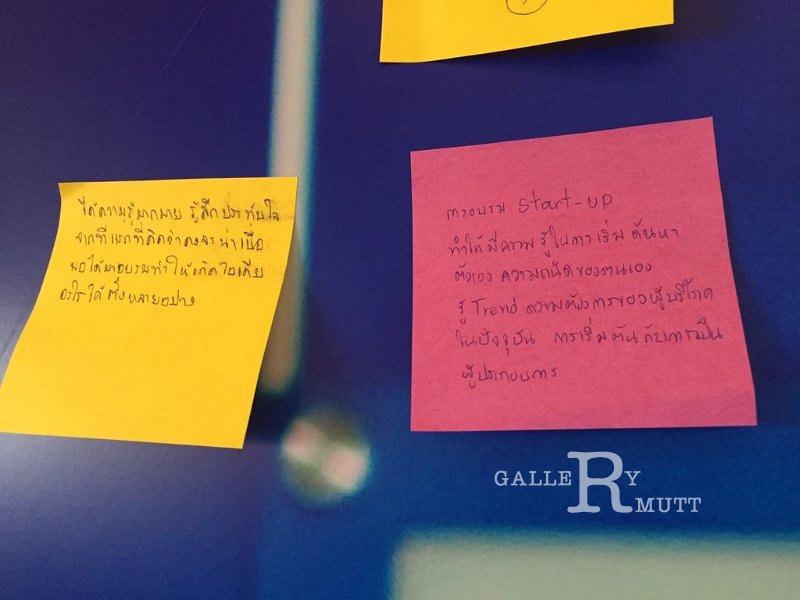 ได้ความรู้มากมาย รู้สึกประทับใจ
จากที่แรกที่คิดว่าคงจะน่าเบื่อ
พอได้มาอบรมทำให้เกิดไอเดีย
อะไรได้ตั้งหลายอย่าง
การอบรม Start-up
ทำให้มีความรู้ในการเริ่มค้นหา
ตัวเอง ความถนัดของตนเอง
รู้ Trend ความต้องการของผู้บริโภค
ในปัจจุบัน การเริ่มต้นกับการเป็น
ผู้ประกอบการ
GALLERY
RMUTT